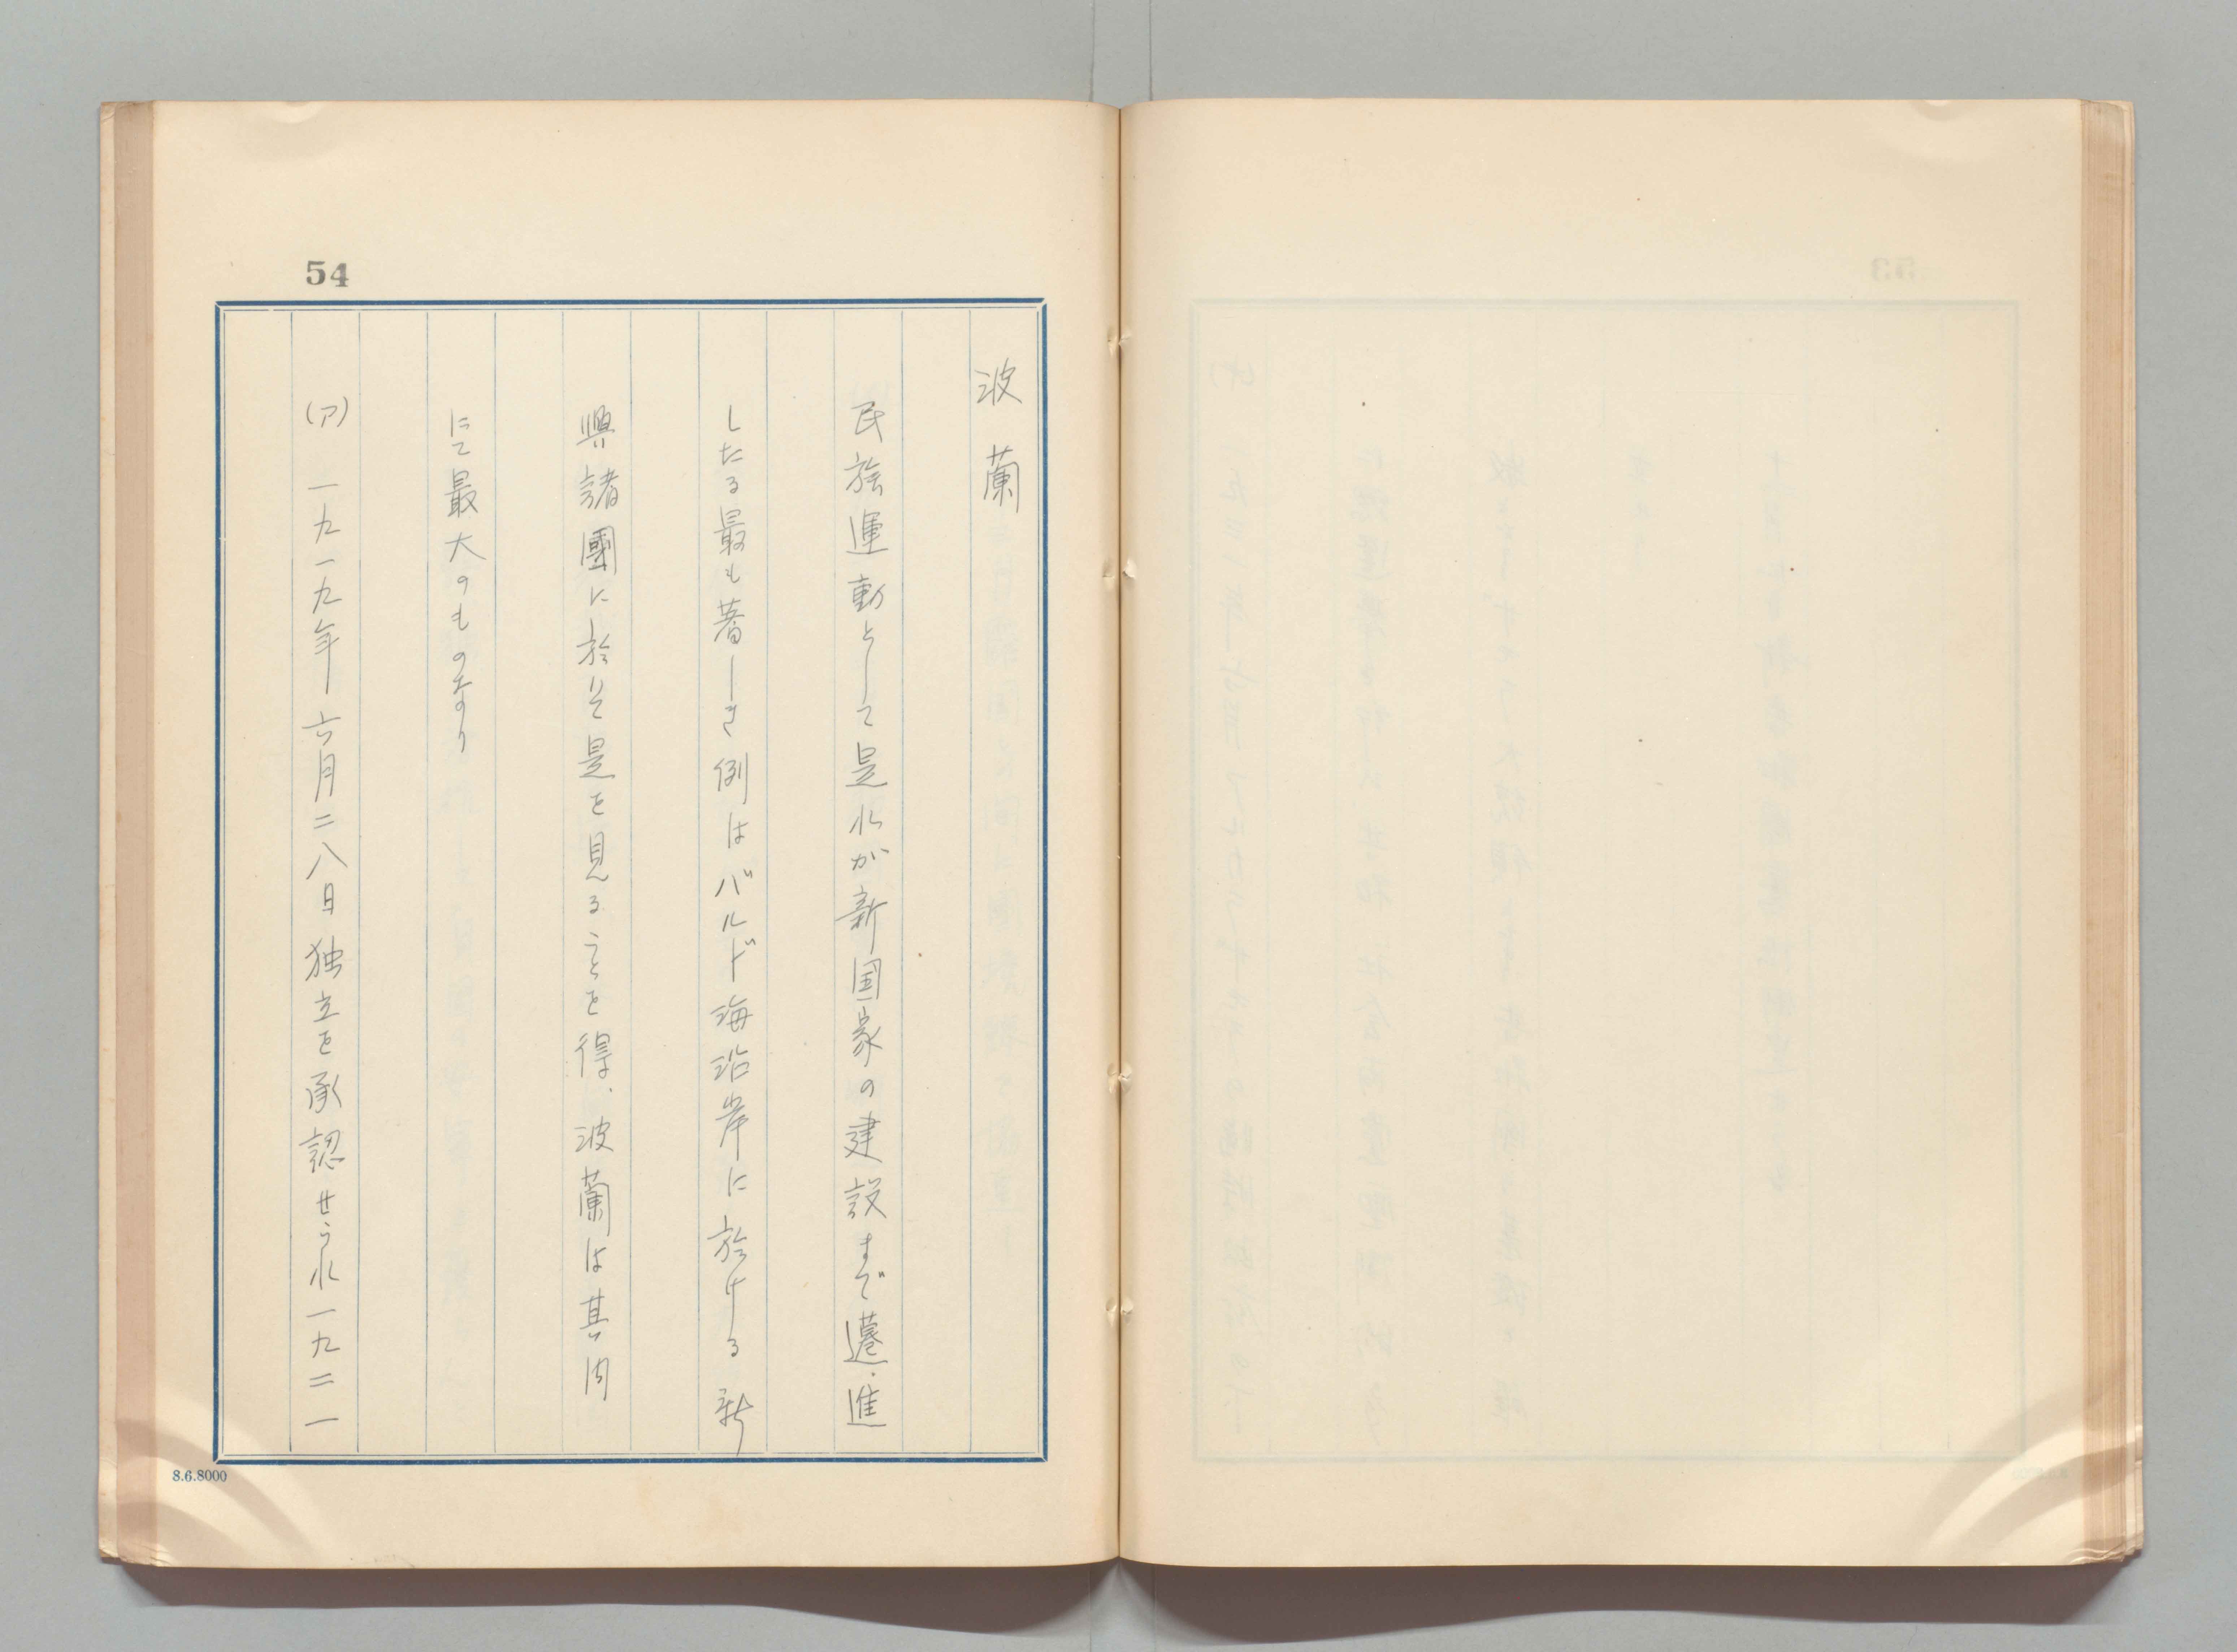 54
波蘭
民族運動として是れが新国家の建設まで邁進
したる最も著しき例はバルド海沿岸に於ける新
興諸國に於いて是を見ることを得、波蘭は其内
にて最大のものなり
(ア)一九一九年六月二八日独立を承認せられ一九二一
8.6.8000